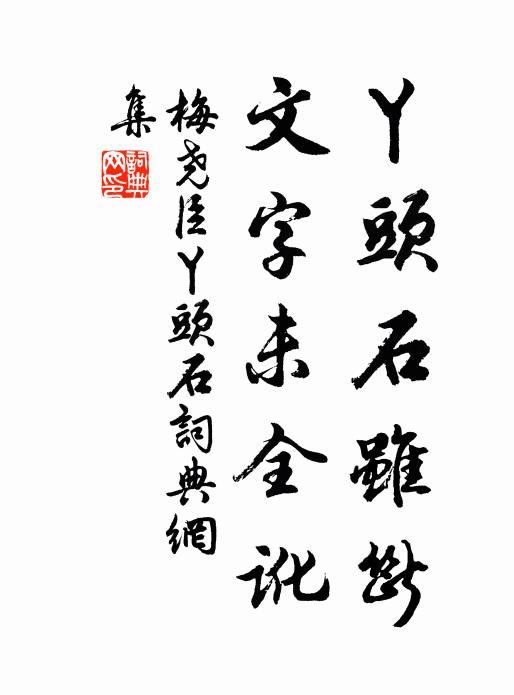 丫頭石雖斷
文字未全訛
梅堯臣丫頭石詞典網
集
詞典
网印